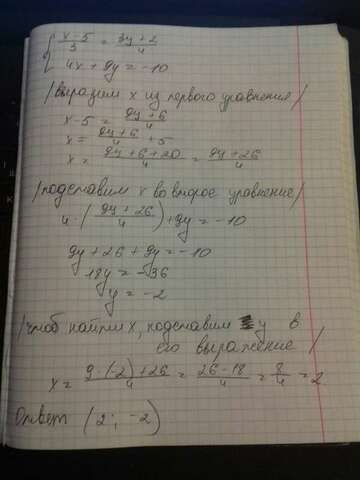 { (x-5)/3 = (3y+2)/4
4x + 9y = -10
/выразим x из первого уравнения/
x-5 = (9y+6)/4
x = (9y+6)/4 + 5
x = (9y+6+20)/4 = (9y+26)/4
/подставим x во второе уравнение/
4·((9y+26)/4) + 9y = -10
9y + 26 + 9y = -10
18y = -36
y = -2
/чтоб найти x, подставим y в
его выражение/
x = (9·(-2)+26)/4 = (26-18)/4 = 8/4 = 2
Ответ (2; -2)